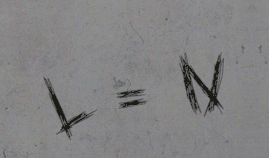 L = N